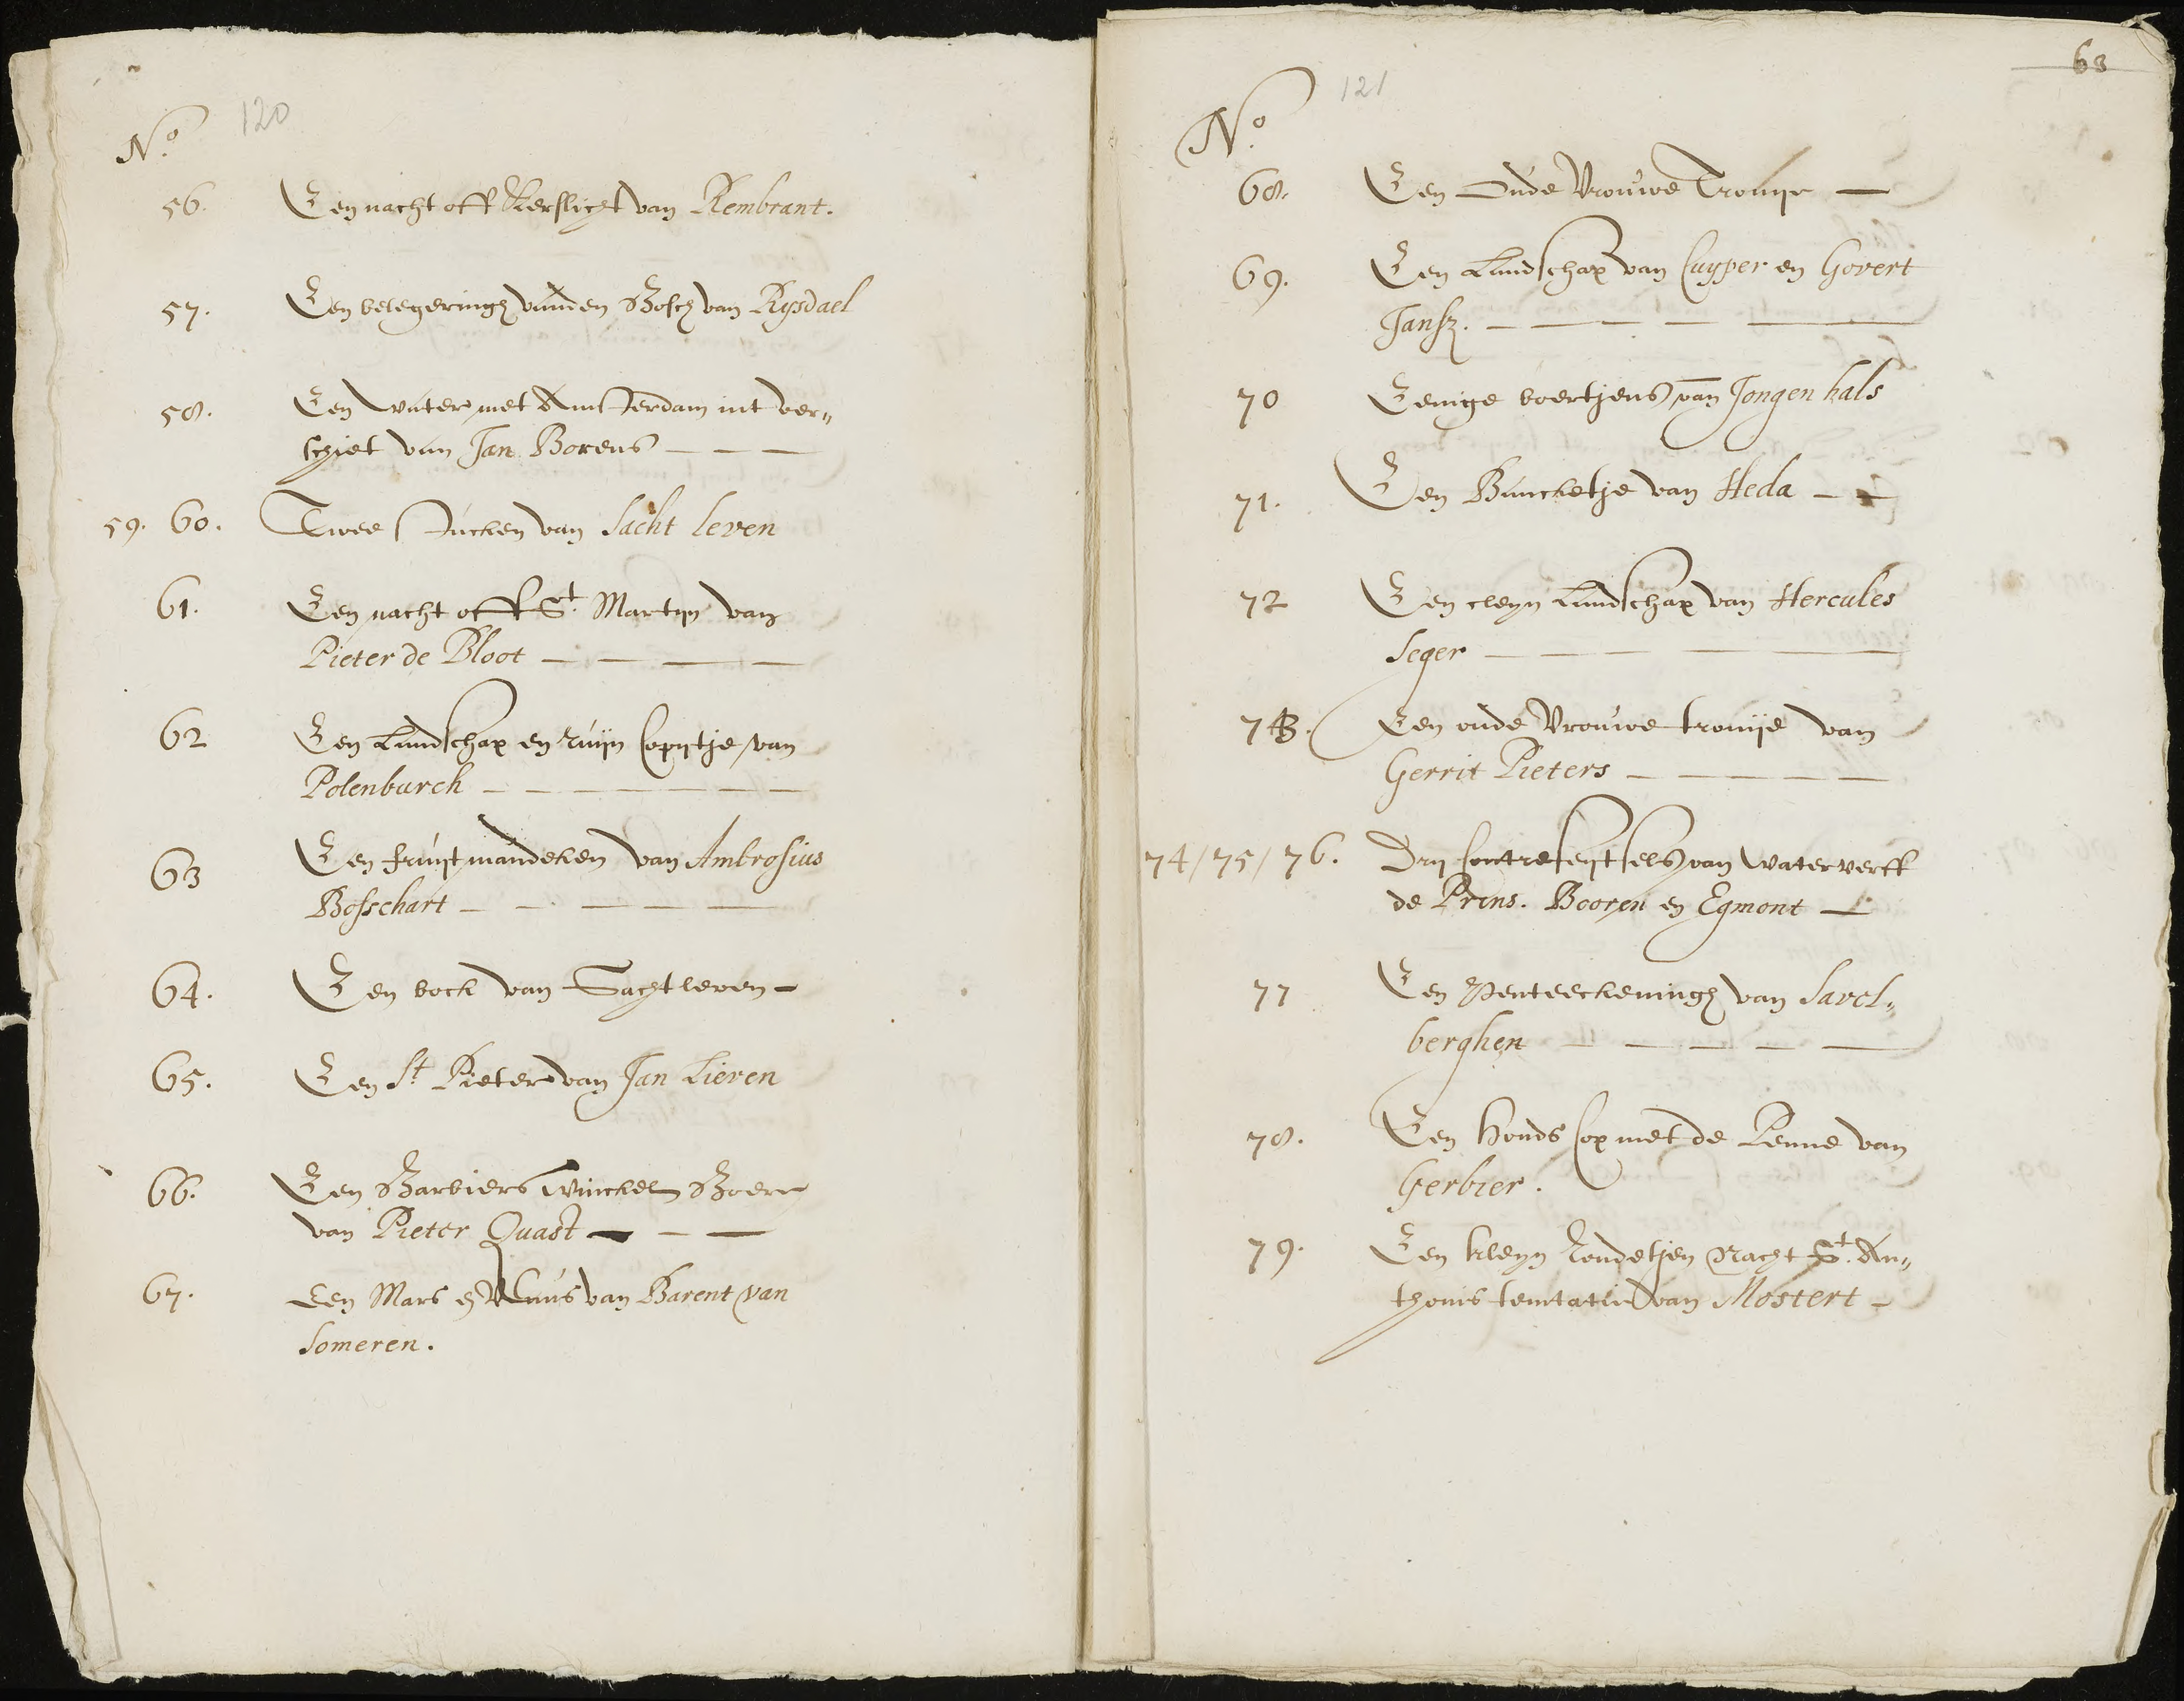 120
No
56. Een nacht oft Kerslicht van Rembrant.
57. Een belegeringh vanden Bosch van Rysdael
58. Een water met Amsterdam int ver„
schiet van Jan Borens
59. 60. Twee stucken van Sacht leven
61. Een nacht oft St. Martyn van
Pieter de Bloot
62 Een Landschap en ruijn Copijtje van
Polenburch
63 Een fruijtmandeken van Ambrosius
Bosschart
64. Een bock van Sachtleven
65. Een St Pieter van Jan Lieven
66. Een Barbiers winckel Boere
van Pieter Quast
67. Een Mars en Venus van Barent van
Someren.
63
121
No
68. Een Oude Vrouwe Tronije
69. Een Landschap van Cuyper en Govert
Jansz.
70 Eenige boertjens van Jongen hals
71. Een Bancketje van Heda
72 Een cleyn Landschap van Hercules
Seger
73. Een oude Vrouwe tronije van
Gerrit Pieters
74/75/76. Dry Contrefeijtsels van waterverff
de Prins. Hooren en Egmont
77 Een Penteeckeningh van Savel„
berghen
78. Een Honds Cop met de Penne van
Gerbier.
79. Een kleyn Rondetjen Nacht St. An„
thonis temtatie van Mostert